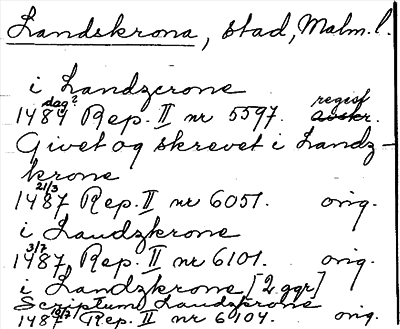 Landskrona, stad, Malm. l.
i Landzcrone
dag? regist
1484 Rep. II nr 5597. avskr.
Givet og skrevet i Landz-
krone
21/3
1487 Rep. II nr 6051. orig.
i Landzkrone
3/7
1487 Rep. II nr 6101. orig.
i Landzkrone [2 ggr]
Scriptum Landzkrone
1487 Rep. II nr 6104. orig.